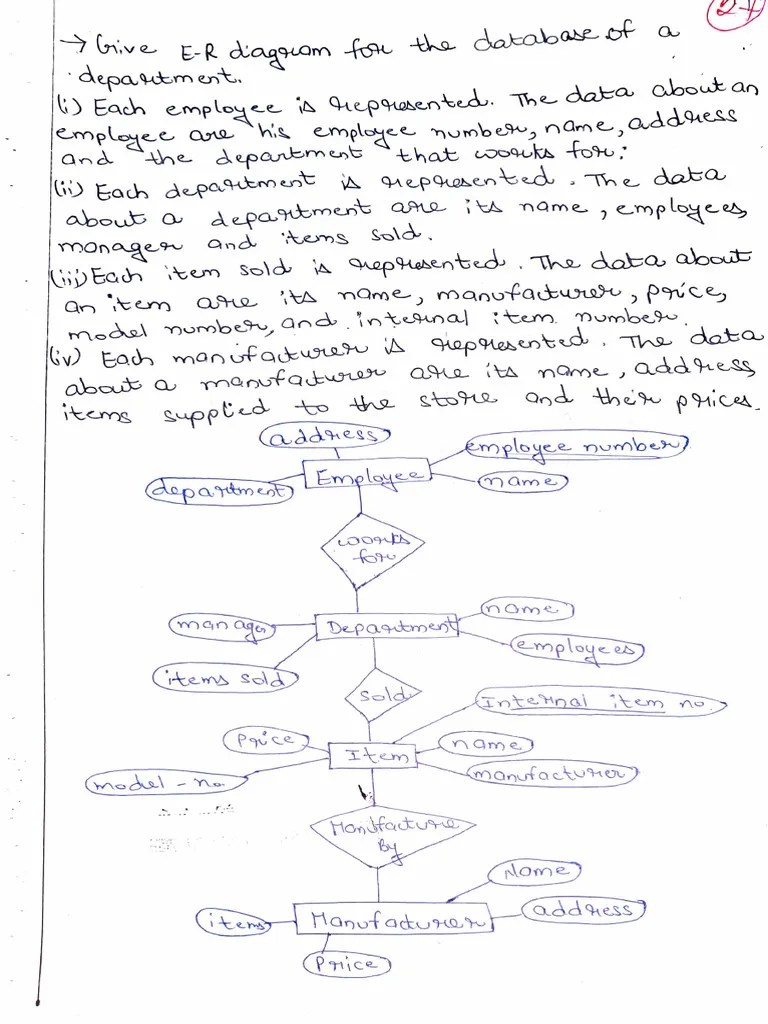 27
→ Give E-R diagram for the database of a
department.
(i) Each employee is represented. The data about an
employee are his employee number, name, address
and the department that works for:
(ii) Each department is represented. The data
about a department are its name, employees,
manager and items sold.
(iii) Each item sold is represented. The data about
an item are its name, manufacturer, price,
model number, and internal item number.
(iv) Each manufacturer is represented. The data
about a manufacturer are its name, address,
items supplied to the store and their prices.
address
employee number
Employee
department
name
works
for
name
manager
Department
employees
items sold
sold
Internal item no.
Price
name
Item
manufacturer
model - no.
Manufacture
By
Name
items
Manufacturer
address
Price